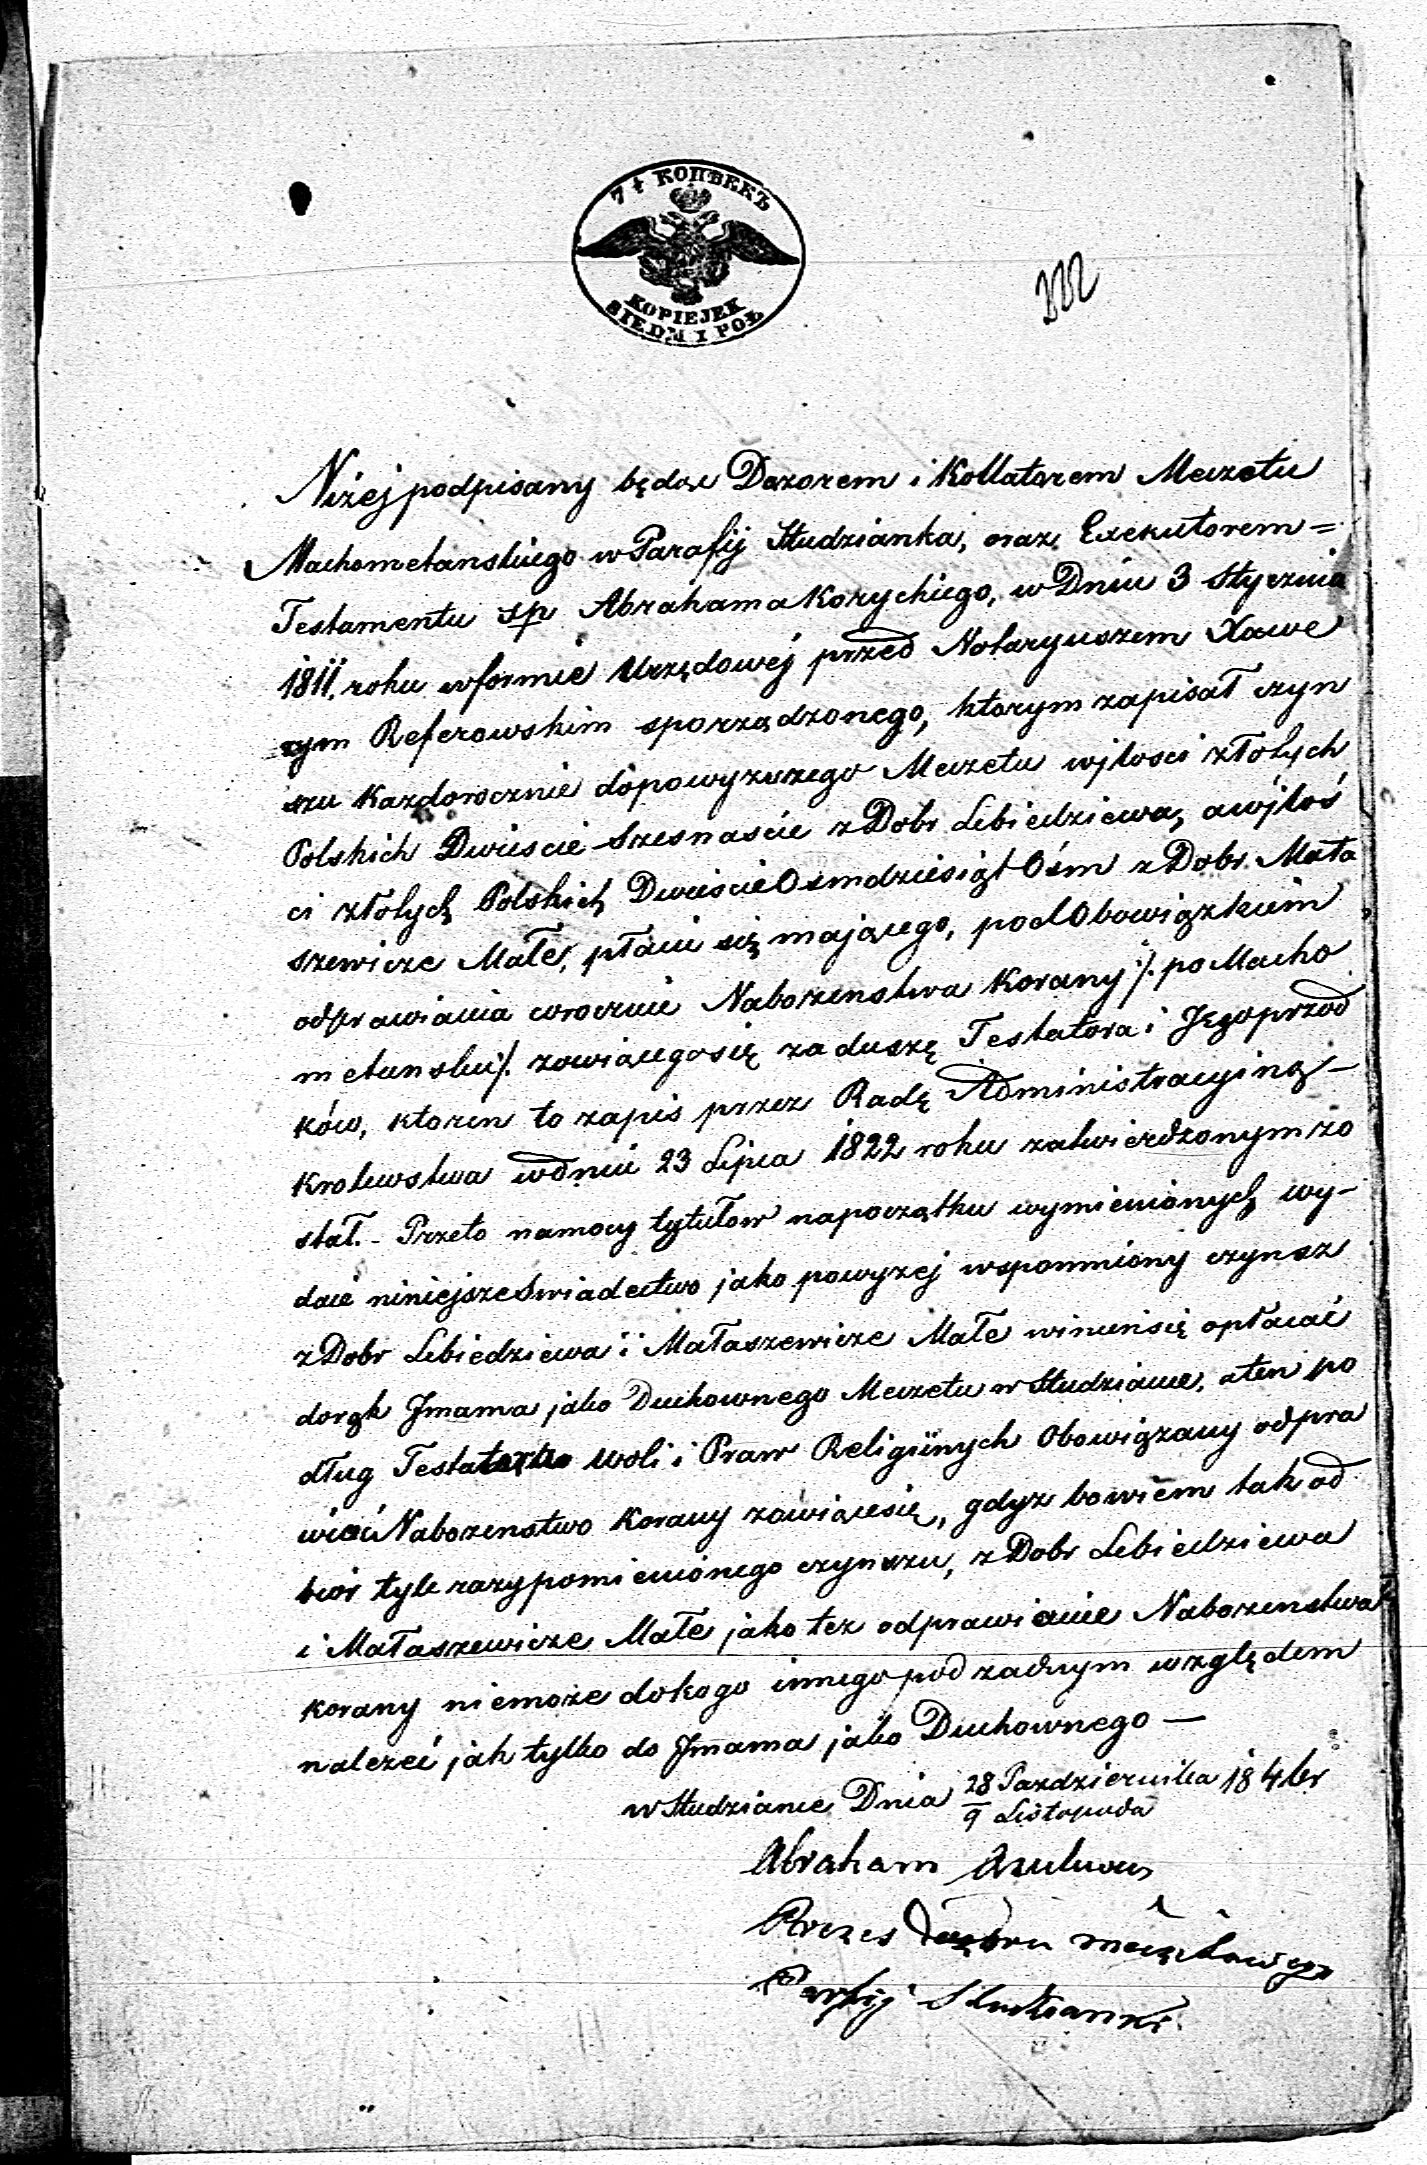 7½ КОПѢЕКЪ
KOPIEJEK
SIEDM I POŁ
Niżej podpisany będąc Dozorem i Kollatorem Meczetu
Machometanskiego w Parafij Studzianka, oraz Exekutorem =
Testamentu sp Abrahama Koryckiego, w Dniu 3 Stycznia
1811, roku w formie Urzędowéj przed Notaryuszem Xawe
rym Referowskim sporządzonego, ktorym zapisał czyn
szu Kazdorocznie do powyzszego Meczetu wjlosci złotych
Polskich Dwiescie Szesnascie z Dobr Lebiedziewa, a wjloś
ci złotych Polskich Dwiescie Osmdziesiąt Ośm z Dobr Mała
szewicze Małe, płacić się mającego, pod Obowiązkiem
odprawiania corocznie Nabozenstwa Korany /: po Macho
metansku :/ zowiącego się za duszę Testatora i Jego przod
ków, ktoren to zapis przez Radę Administracyiną –
Krolewstwa w dniu 23 Lipca 1822 roku zatwierdzonym zo
stał. – Przeto na mocy tytułow na początku wymienionych wy-
daie niniejsze swiadectwo jako powyzej wspomniony czynsz
z Dobr Lebiedziewa i Małaszewicze Małe winien się opłacać
do rąk Jmama jako Duchownego Meczetu w Studziance, a ten po
dług Testatora woli i Praw Religiinych Obowiązany odpra
wiać Nabozenstwo Korany zowiące się, gdyz bowiem tak od
biór tyle razy pomienionego czynszu, z Dobr Lebiedziewa
i Małaszewicze Małe jako tez odprawianie Nabozenstwa
Korany niemoze do kogo innego pod zadnym względem
nalezeć jak tylko do Jmama jako Duchownego —
w Studziance Dnia 28 Pazdziernika
9 Listopada
Abraham
Prezes Dozoru Meczetowego
Parfij Studzianki